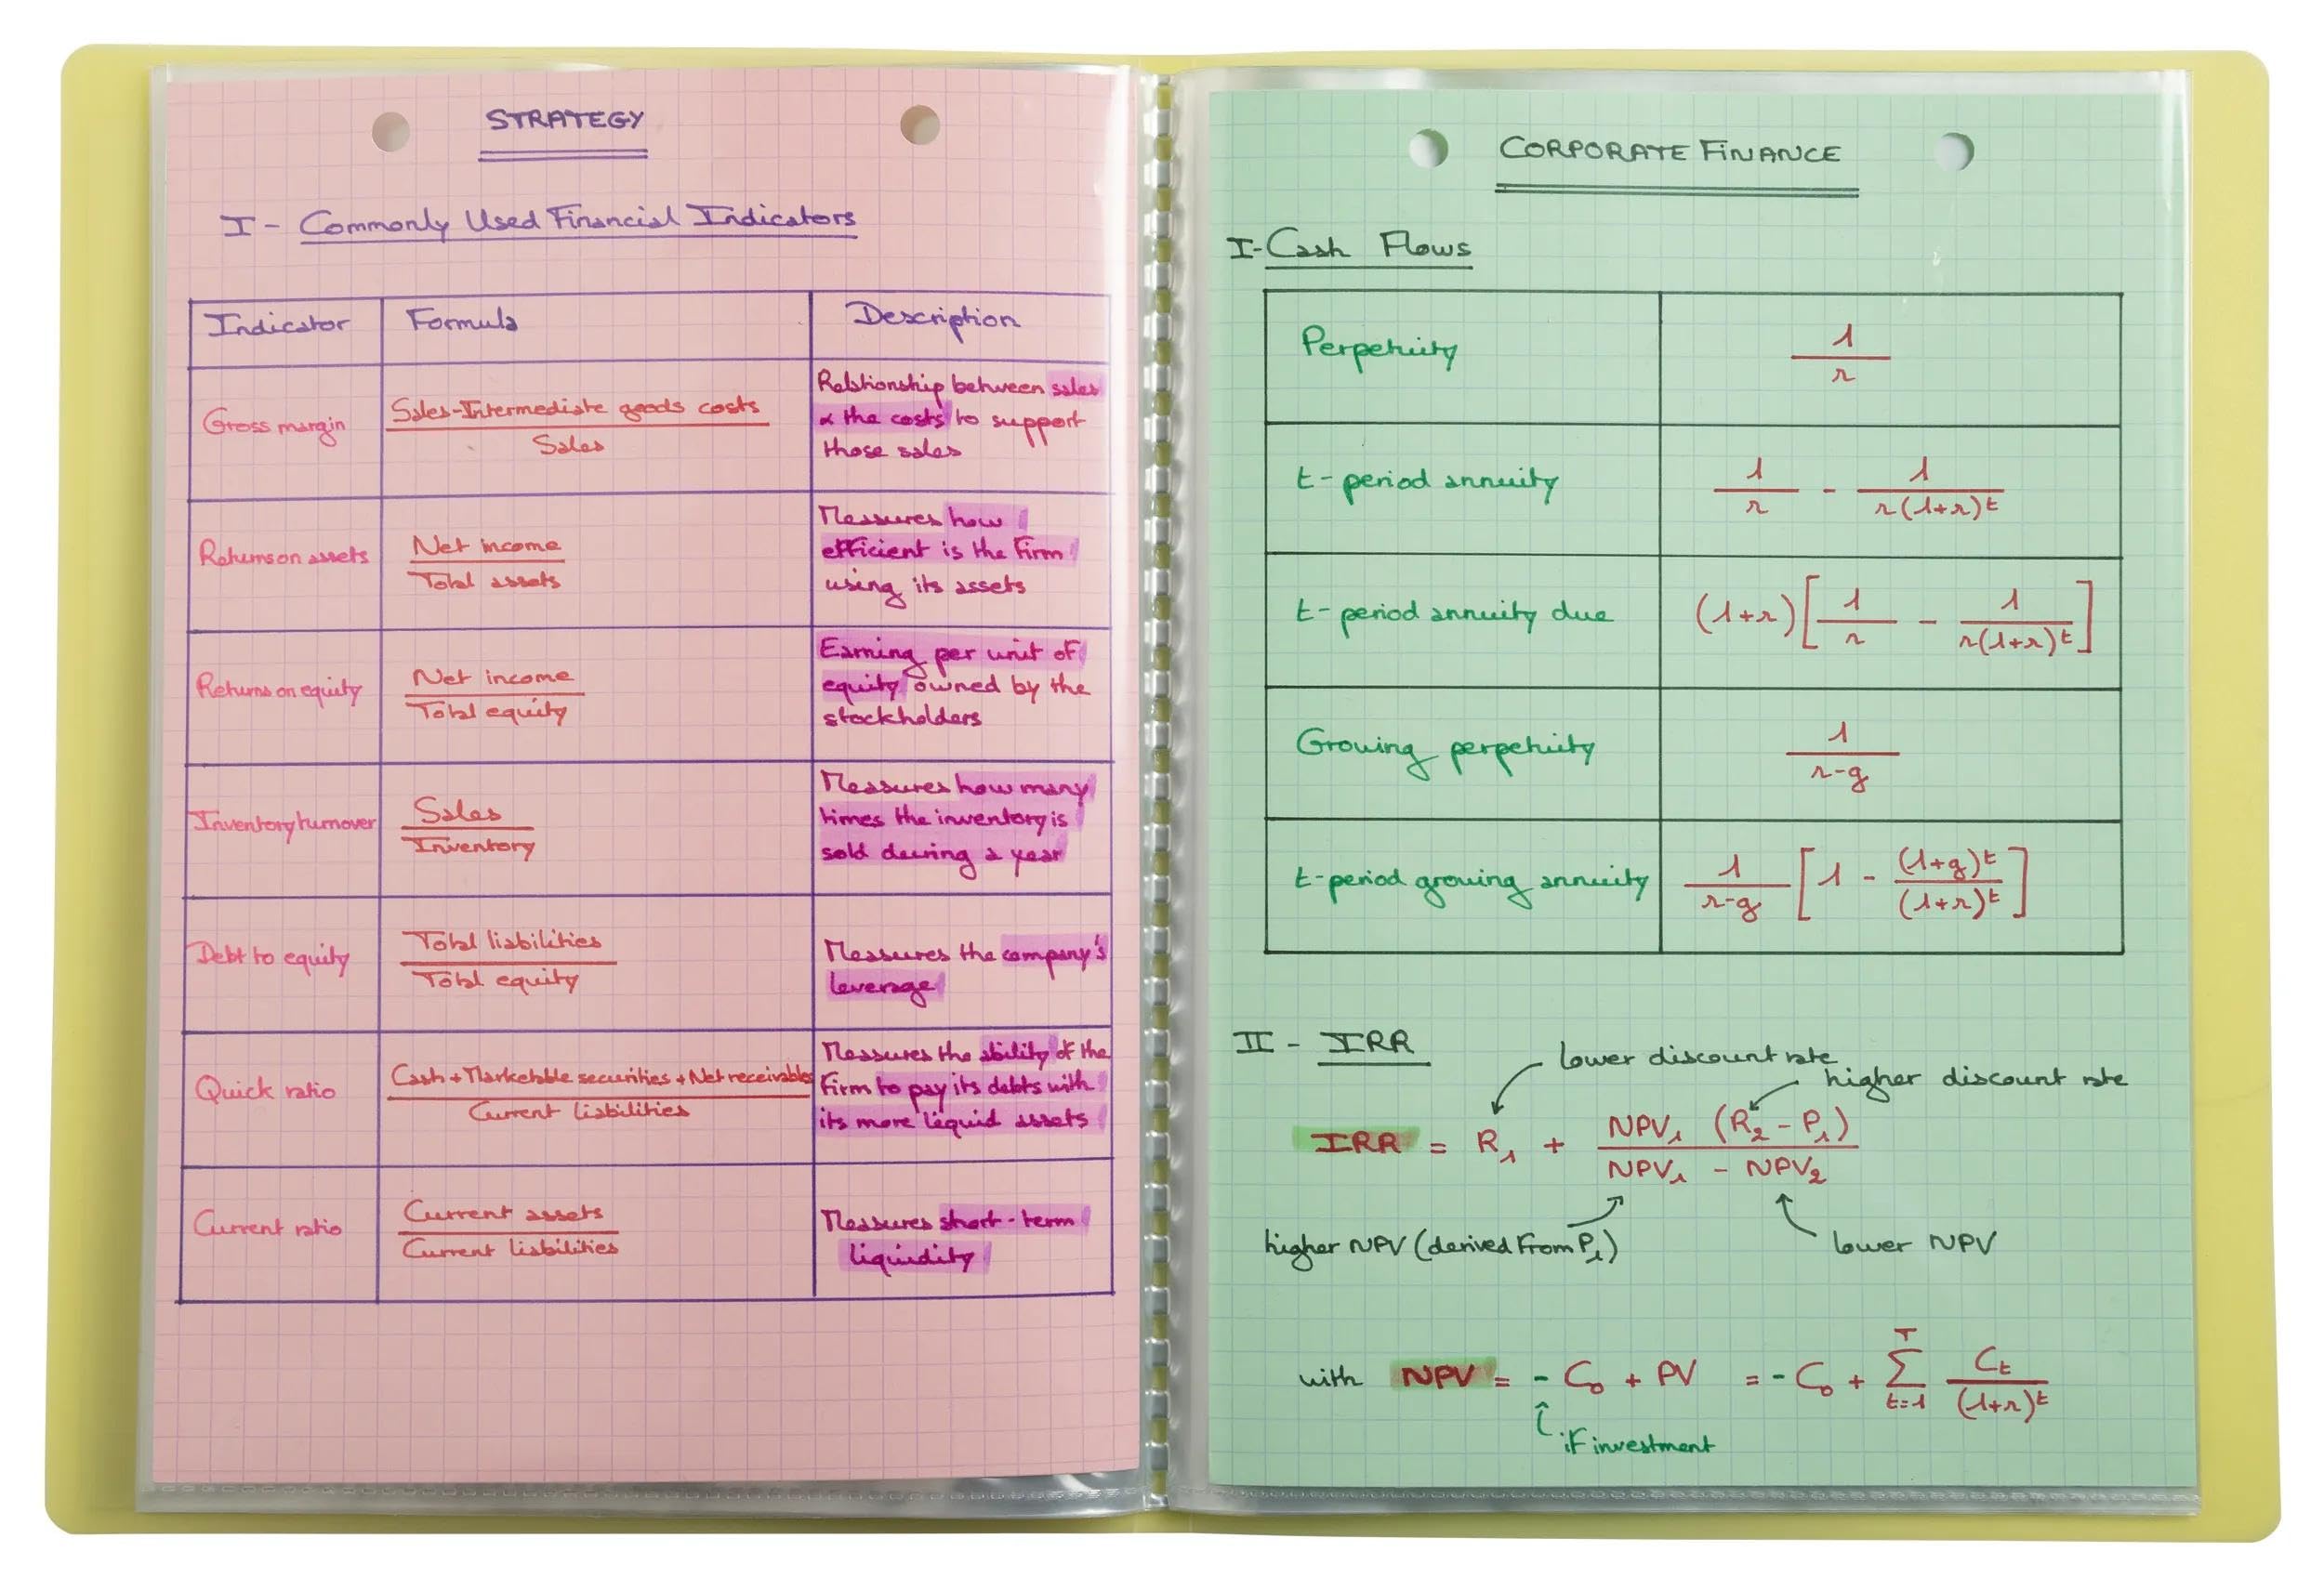 STRATEGY
I - Commonly Used Financial Indicators
Indicator
Formula
Description
Gross margin
Sales-Intermediate goods costs
Sales
Relationship between sales
& the costs to support
those sales
Returns on assets
Net income
Total assets
Measures how
efficient is the firm
using its assets
Returns on equity
Net income
Total equity
Earning per unit of
equity owned by the
stockholders
Inventory turnover
Sales
Inventory
Measures how many
times the inventory is
sold during a year
Debt to equity
Total liabilities
Total equity
Measures the company's
leverage
Quick ratio
Cash + Marketable securities + Net receivables
Current liabilities
Measures the ability of the
firm to pay its debts with
its more liquid assets
Current ratio
Current assets
Current liabilities
Measures short-term
liquidity
CORPORATE FINANCE
I - Cash Flows
Perpetuity
1
r
t-period annuity
1 - 1
r r(1+r)^t
t-period annuity due
(1+r) [ 1 - 1 ]
r r(1+r)^t
Growing perpetuity
1
r-g
t-period growing annuity
1 [ 1 - (1+g)^t ]
r-g (1+r)^t
II - IRR
lower discount rate
higher discount rate
IRR = R₁ + NPV₁ (R₂ - P₁)
NPV₁ - NPV₂
higher NPV (derived from P₁)
lower NPV
with NPV = - C₀ + PV = - C₀ + T Σ t=1 Ct
(1+r)^t
if investment